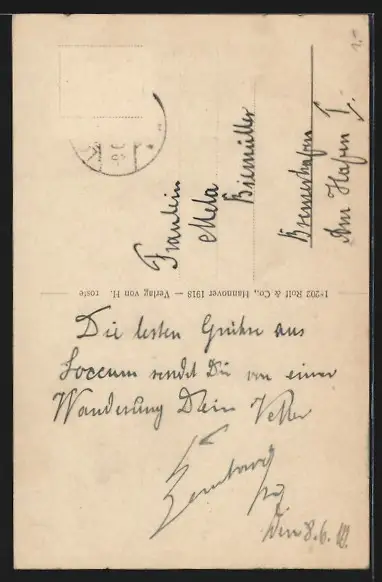 Fräulein
Meta
Biemüller
Bremerhafen
Am Hafen I.
1*202 Rolf & Co., Hannover 1918 — Verlag von H. roste
Die besten Grüße aus
Loccum sendet Dir von einer
Wanderung Dein Vetter
Den 8.6.